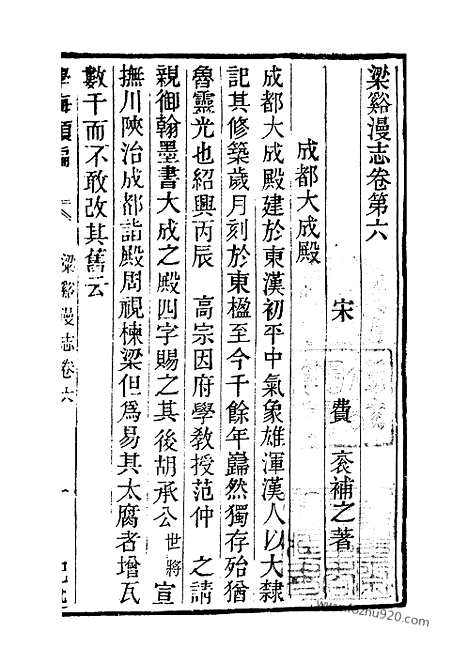 梁谿漫志卷第六
宋 費 袞補之著
成都大成殿
成都大成殿建於東漢初平中氣象雄渾漢人以大隸
記其修築歲月刻於東楹至今千餘年巋然獨存殆猶
魯靈光也紹興丙辰 高宗因府學敎授范仲 之請
親御翰墨書大成之殿四字賜之其後胡承公世將宣
撫川陝治成都詣殿周視棟梁但爲易其太腐者增瓦
數千而不敢改其舊云
學海類編 梁谿漫志卷六 一
www.fozhu920.com